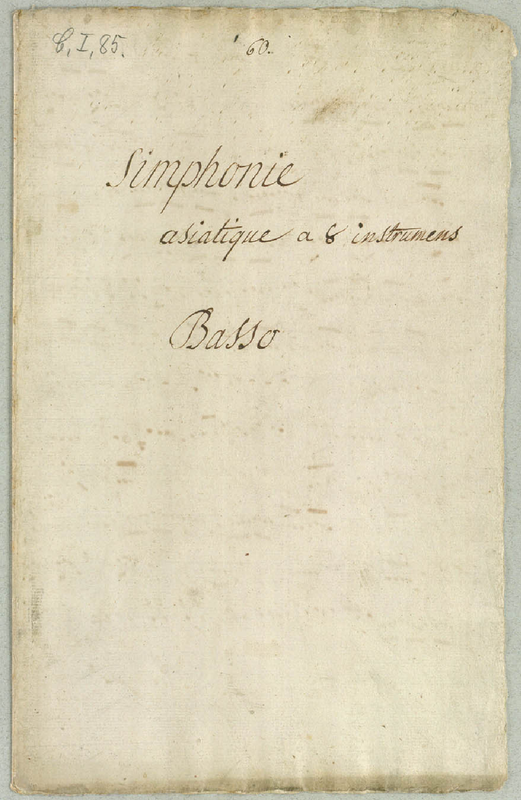 C, I, 85.
60.
Simphonie
asiatique a 8 instrumens
Basso